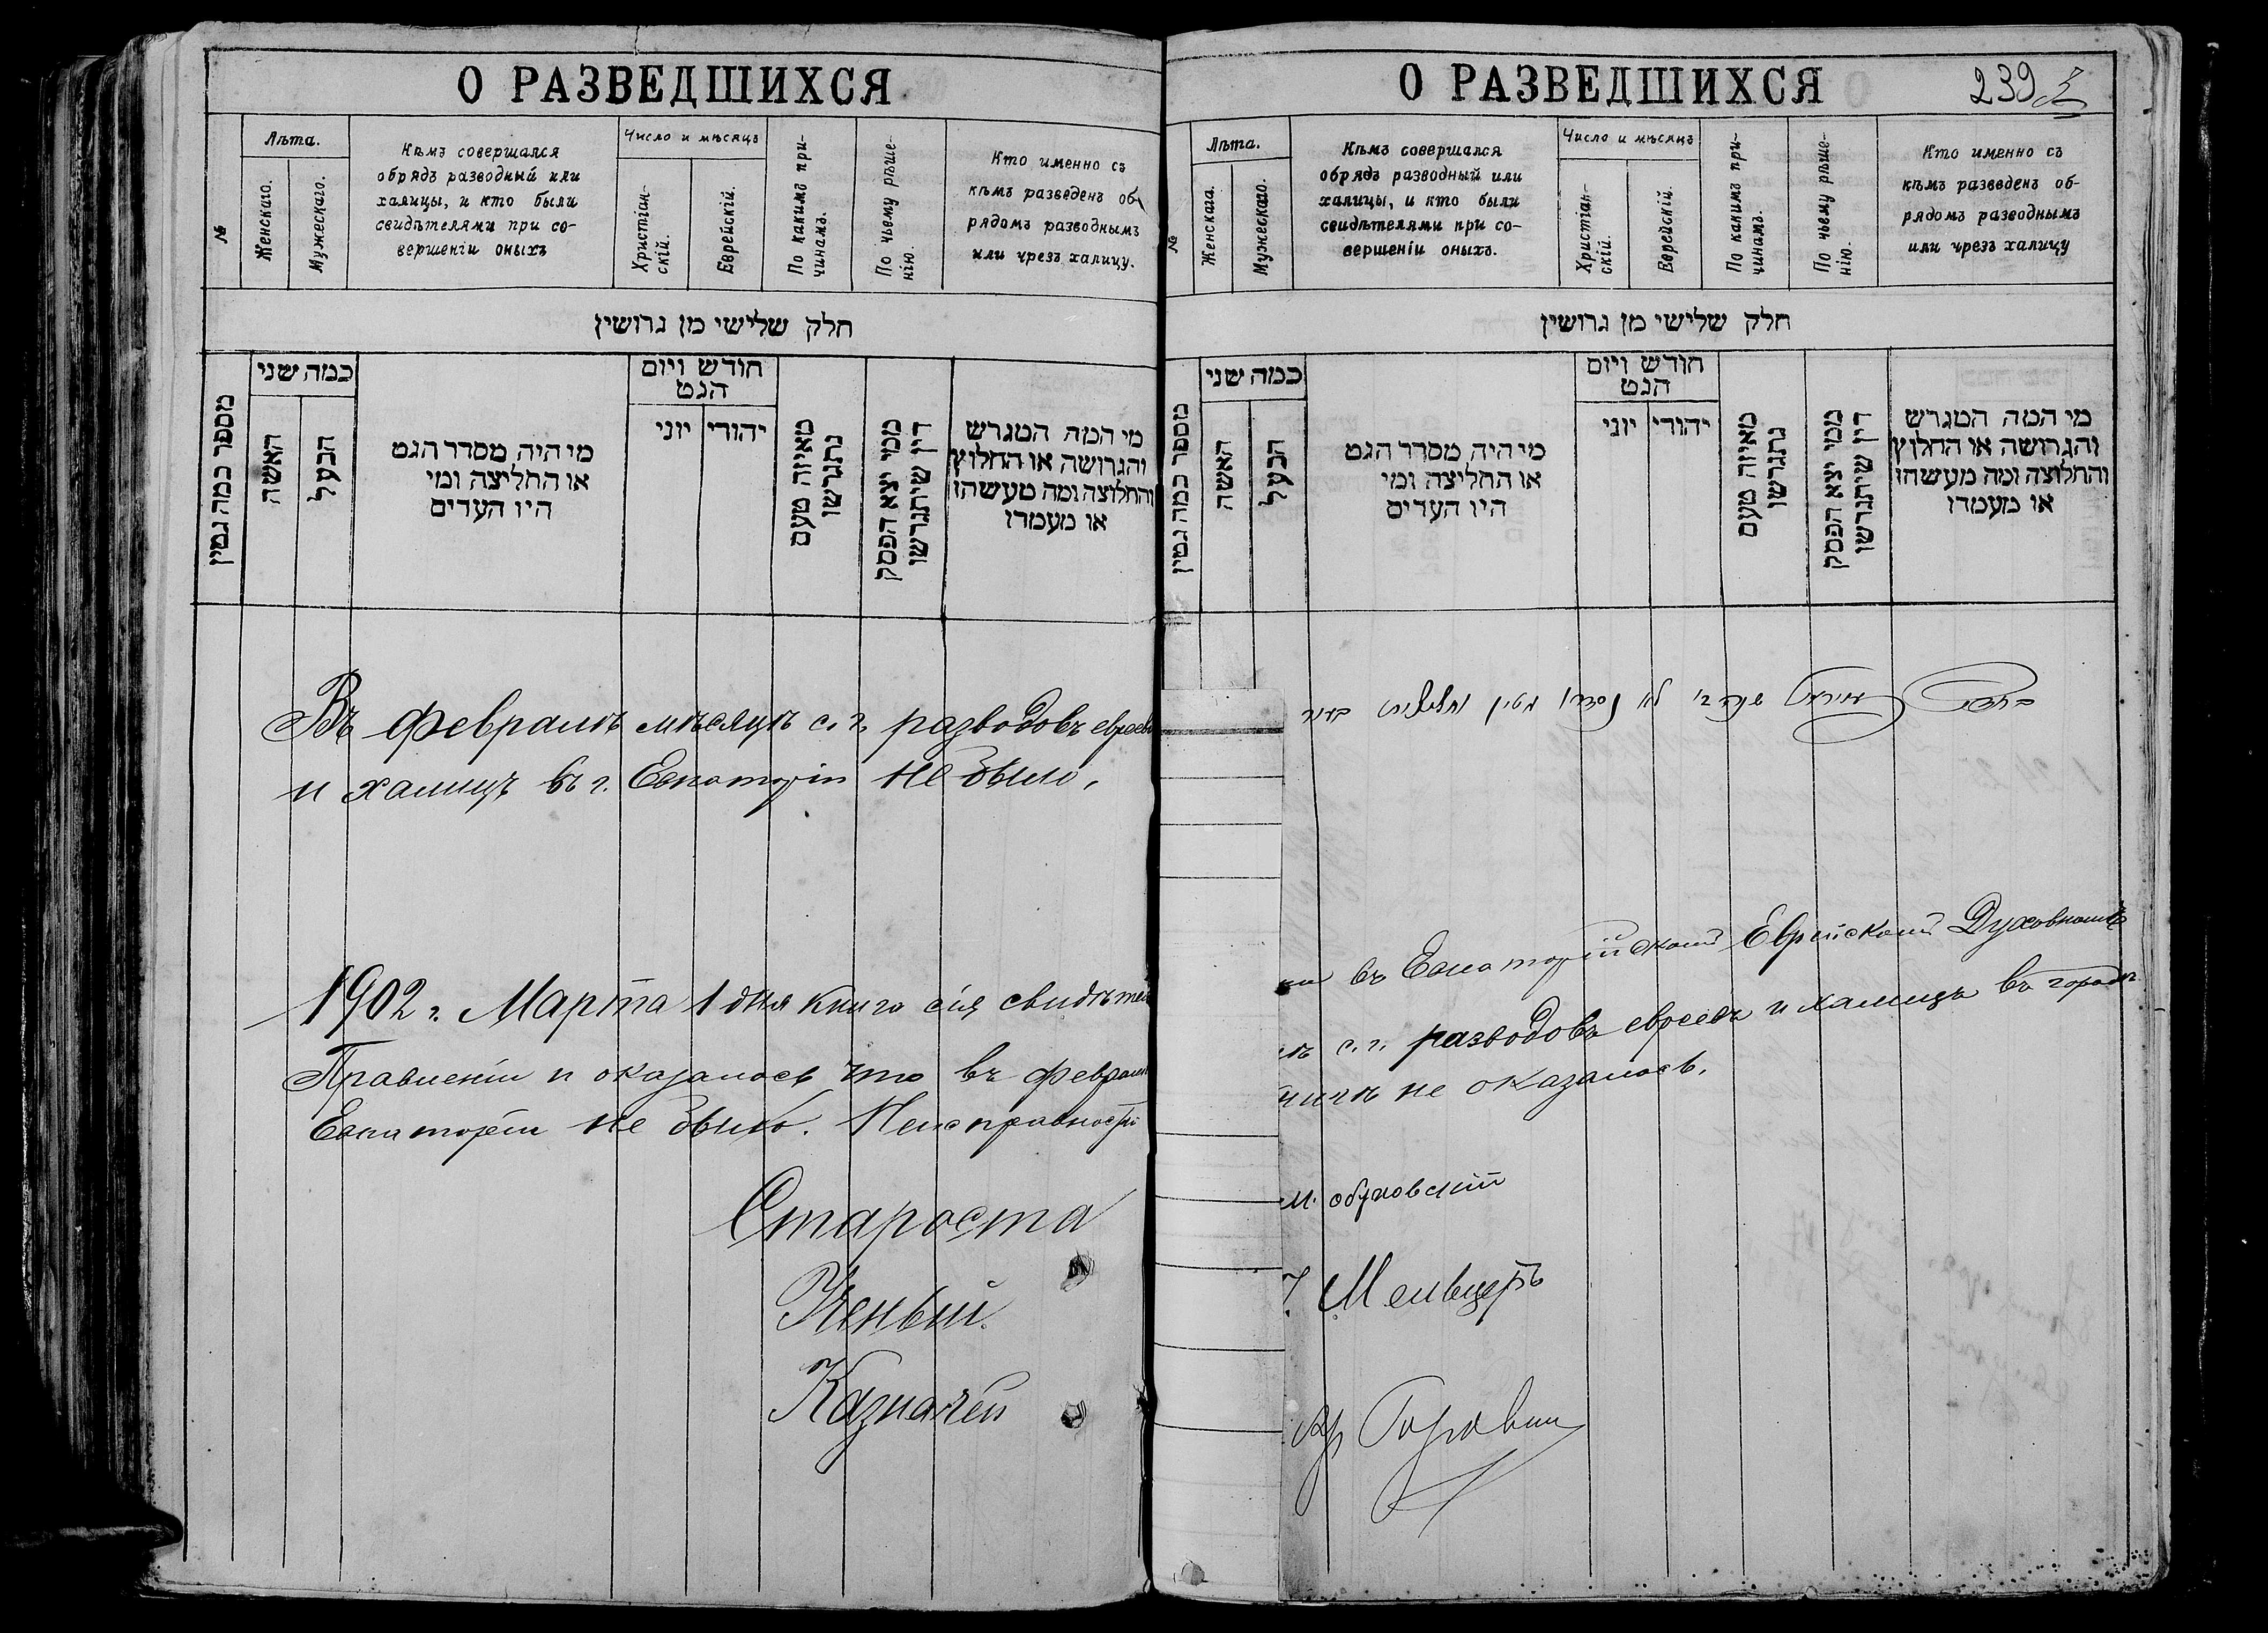 О РАЗВЕДШИХСЯ
№
Лѣта.
Женскаго.
Мужескаго.
Кѣмъ совершался
обрядъ разводный или
халицы, и кто были
свидѣтелями при со-
вершеніи оныхъ
Число и мѣсяцъ
Христіан-
скій.
Еврейскій.
По какимъ при-
чинамъ.
По чьему рѣше-
нію.
Кто именно съ
кѣмъ разведенъ об-
рядомъ разводнымъ
или чрезъ халицу.
חלק שלישי מן גרושין
מספר כמה גטין
כמה שני
האשה
הבעל
מי היה מסדר הגט
או החליצה ומי
היו העדים
חודש ויום
הגט
יוני
יהודי
מאיזה טעם
נתגרשו
ממי יצא הפסק
דין שיתגרשו
מי המה המגרש
והגרושה או החלוץ
והחלוצה ומה מעשהו
או מעמדו
Въ февралѣ мѣсяцѣ с. г. разводовъ евреевъ
и халицъ въ г. Евпаторіи не было.
1902 г. Марта 1 дня книга сія свидѣтел
Правленіи и оказалось что въ феврал
Евпаторіи не было. Неисправности
Староста
Ученый
Казначей
О РАЗВЕДШИХСЯ
239
№
Лѣта.
Женскаго.
Мужескаго.
Кѣмъ совершался
обрядъ разводный или
халицы, и кто были
свидѣтелями при со-
вершеніи оныхъ.
Число и мѣсяцъ
Христіан-
скій.
Еврейскій.
По какимъ при-
чинамъ.
По чьему рѣше-
нію.
Кто именно съ
кѣмъ разведенъ об-
рядомъ разводнымъ
или чрезъ халицу
חלק שלישי מן גרושין
מספר כמה גטין
כמה שני
האשה
הבעל
מי היה מסדר הגט
או החליצה ומי
היו העדים
חודש ויום
הגט
יוני
יהודי
מאיזה טעם
נתגרשו
ממי יצא הפסק
דין שיתגרשו
מי המה המגרש
והגרושה או החלוץ
והחלוצה ומה מעשהו
או מעמדו
въ Евпаторійскомъ Еврейскомъ Духовномъ
с. г. разводовъ евреевъ и халицъ въ городѣ
не оказалось.
М. Обуховскій